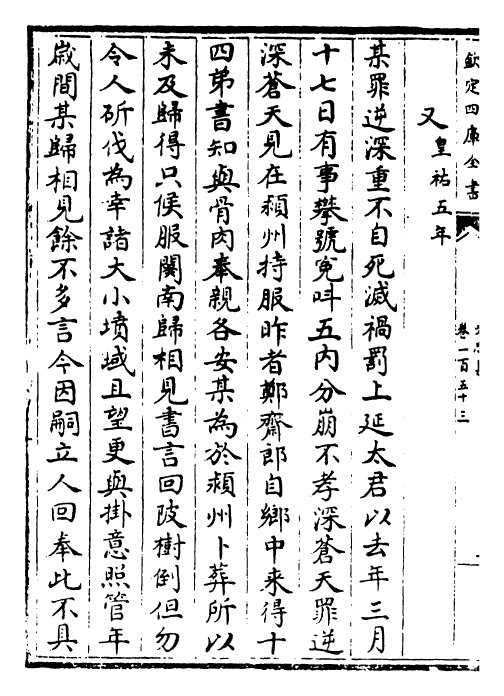 欽定四庫全書
卷一百五十三
又皇祐五年
某罪逆深重不自死滅禍罰上延太君以去年三月
十七日有事攀號寃呌五內分崩不孝深蒼天罪逆
深蒼天見在潁州持服昨者鄭齋郎自鄉中来得十
四弟書知與骨肉奉親各安某為於潁州卜葬所以
未及歸得只候服闋南歸相見書言回陂樹倒但勿
令人斫伐為幸諸大小墳域且望更與掛意照管年
歲間某歸相見餘不多言今因嗣立人回奉此不具